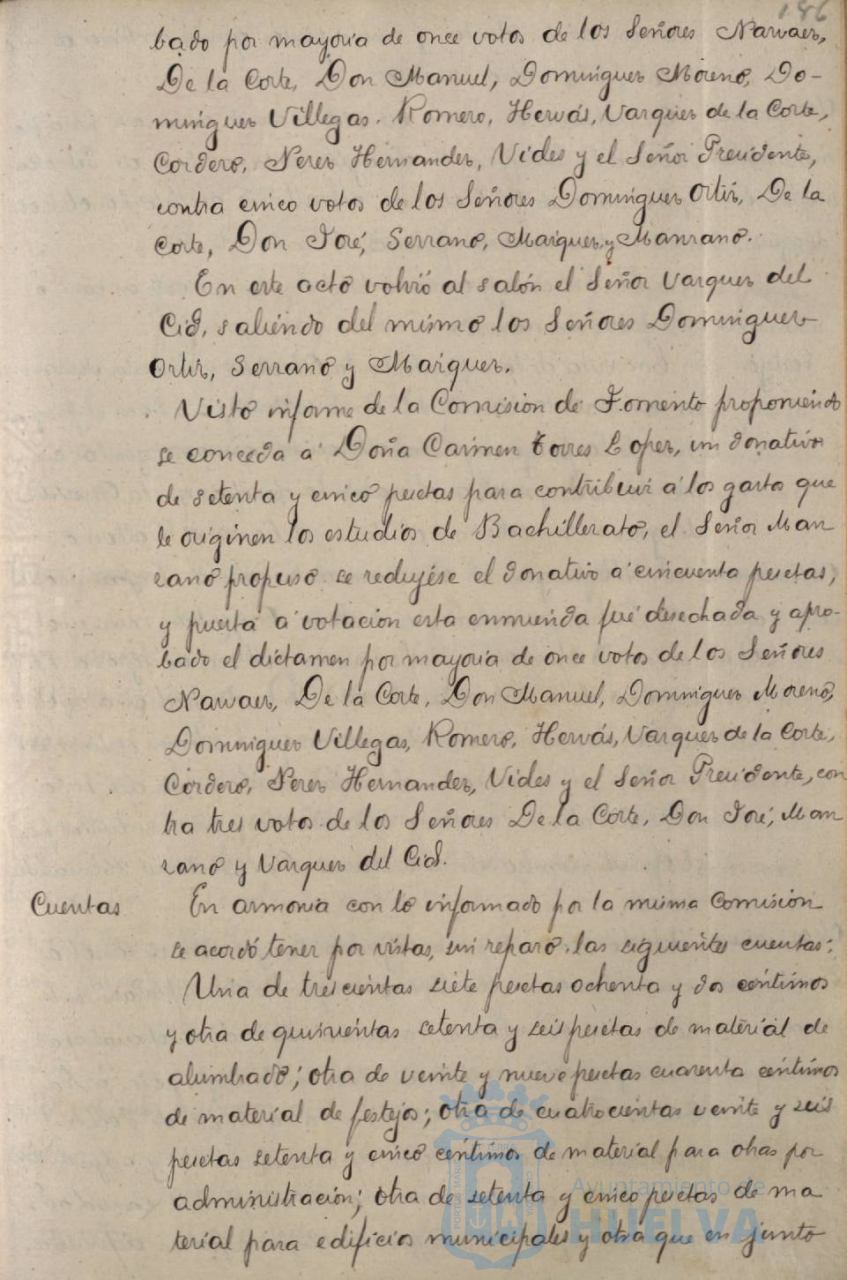 186
bado por mayoria de once votos de los Señores Narvaez,
De la Corte, Don Manuel, Dominguez Moreno, Do-
minguez Villegas. Romero, Hervás, Vazquez de la Corte,
Cordero, Perez Hernandez, Vides y el Señor Presidente,
contra cinco votos de los Señores Dominguez Ortiz, De la
Corte, Don José, Serrano, Marquez y Manzano.
En este acto volvió al salón el Señor Vazquez del
Cid, saliendo del mismo los Señores Dominguez
Ortiz, Serrano y Marquez.
Visto informe de la Comision de Fomento proponiendo
se conceda á Doña Carmen Torres Lopez, un donativo
de setenta y cinco pesetas para contribuir á los gastos que
le originen los estudios de Bachillerato, el Señor Man
zano propuso se redujése el donativo á cincuenta pesetas,
y puesta á votacion esta enmienda fué desechada y apro-
bado el dictamen por mayoria de once votos de los Señores
Narvaez, De la Corte, Don Manuel, Dominguez Moreno,
Dominguez Villegas, Romero, Hervás, Vazquez de la Corte,
Cordero, Perez Hernandez, Vides y el Señor Presidente, con
tra tres votos de los Señores De la Corte, Don José, Man
zano y Vazquez del Cid.
Cuentas
En armonia con lo informado por la misma Comision
se acordó tener por vistas, sin reparo, las siguientes cuentas:
Una de trescientas siete pesetas ochenta y dos centimos
y otra de quinientas setenta y seis pesetas de material de
alumbrado; otra de veinte y nueve pesetas cuarenta centimos
de material de festejos; otra de cuatrocientas veinte y seis
pesetas setenta y cinco centimos de material para obras por
administracion; otra de setenta y cinco pesetas de ma
terial para edificios municipales y otra que en junto
Ayuntamiento de
HUELVA